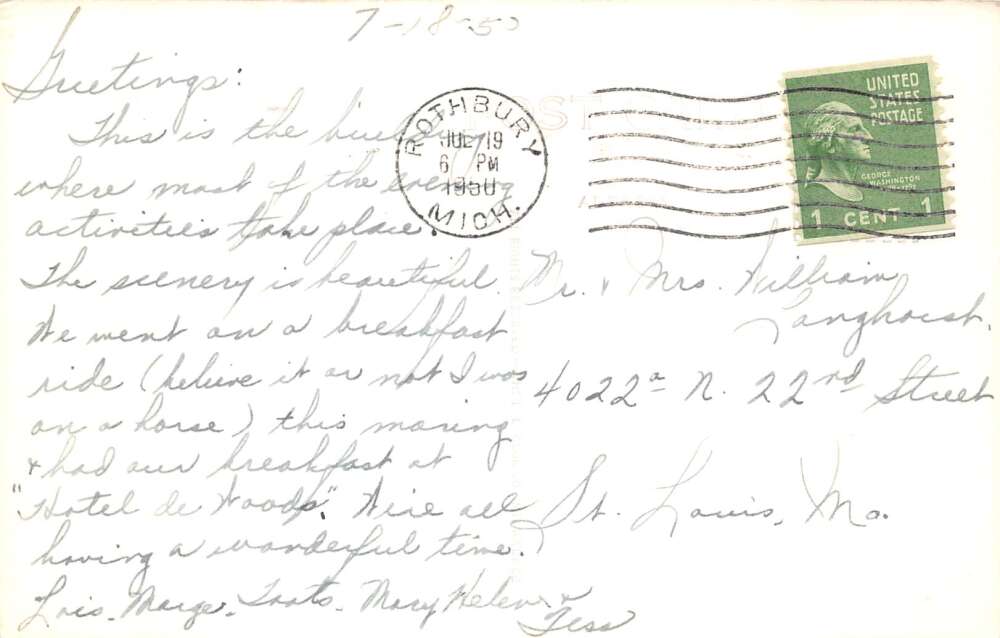 7-18-50
Greetings:
This is the building
where most of the evening
activities take place.
The scenery is beautiful.
We went on a breakfast
ride (believe it or not I was
on a horse) this moring
& had our breakfast at
"Hotel de Woods". We're all
having a wonderful time.
Lois, Marge, Toots, Mary Helene &
Tess
ROTHBURY
JUL 19
6 PM
1950
MICH.
UNITED
STATES
POSTAGE
GEORGE
WASHINGTON
1 CENT 1
Mr. & Mrs. William
Langhorst.
4022a N. 22nd Street
St. Louis, Mo.